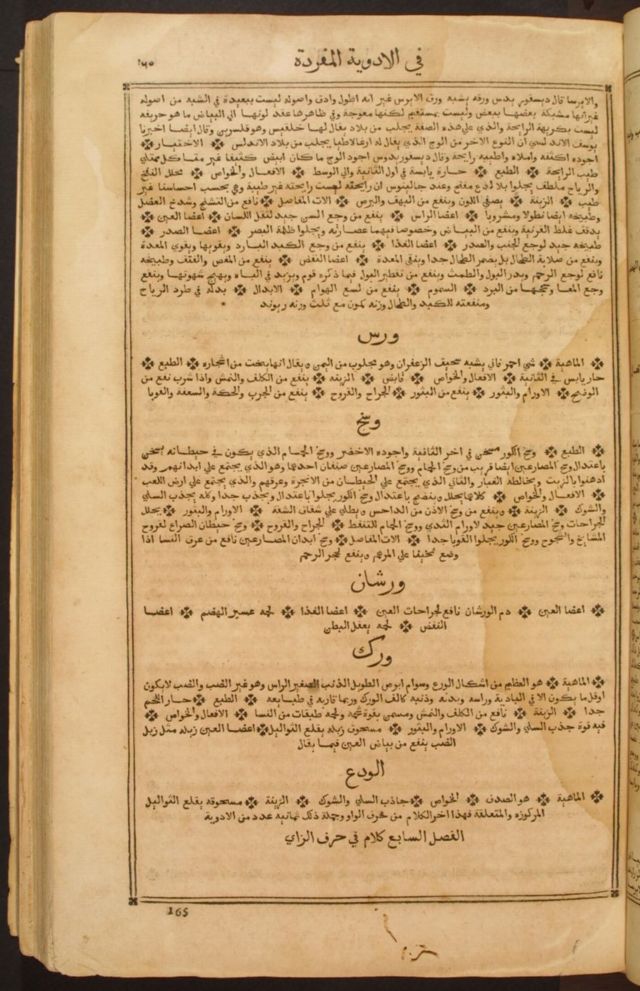 في الادوية المفردة
١٦٥
والايرسا قال ديسقور يدس ورقه يشبه ورق الايرس غير انه اطول وادق واصوله ليست ببعيدة في الشبه من اصوله
غير انها مشبكة بعضها ببعض وليست بمستقيم لكنها معوجة وفي ظاهرها عقد لونها الي البياض ما هو حريفه
ليست بكريهة الرايحة والذي علي هذه الصفة يجلب من بلاد يقال لها خلقيس وهو قلسرين وقال ايضا اخبرنا
يوسف الاندلسي ان النوع الاخر من الوج الذي يقال له ارغالاطيا يجلب من بلاد الاندلس الاختيار
اجوده اكثفه واملاه واطيبه رايحة وقال ديسقوريدوس اجود الوج ما كان ابيض كثيفا غير متاكل ممتلي
طيب الرايحة الطبع حارة يابسة في اول الثانية والي الوسط الافعال والخواص محلل النفخ
والرياح ملطف يجلوا بلا لدع مفتح وعند جالينوس ان رايحته ليست رايحته غير طيبة وفي بحسب احساسنا غير
طيب الزينة يصفي اللون وينفع من البهق والبرص الات المفاصل نافع من التشنج وشدخ العضل
وطبيخه ايضا نطولا ومشروبا اعضا الراس ينفع من وجع السن جيد لثقل اللسان اعضا العين
يدقق غلظ القرنية وينفع من البياض وخصوصا فيهما عصارته ويجلوا ظلمة البصر اعضا الصدر
طبيخه جيد لوجع الجنب والصدر اعضا الغذا ينفع من وجع الكبد البارد ويقويها ويقوي المعدة
وينفع من صلابة الطحال بل يضمر الطحال جدا وينقي المعدة اعضا النفض ينفع من المغص والفتق وطبيخه
نافع لوجع الرحم ويدر البول والطمث وينفع من تقطير البول فيما ذكره قوم ويزيد في الباه ويهيج شهوتها وينفع
وجع المعا وسحجها من البرد السموم ينفع من لسع الهوام الابدال بدله في طرد الرياح
ومنفعته للكبد والطحال وزنه كمون مع ثلث وزنه ريوند
ورس
الماهية شي احمر قاني يشبه سحيق الزعفران وهو مجلوب من اليمن ويقال انها ينحت من اشجاره الطبع
حار يابس في الثانية الافعال والخواص قابض الزينة ينفع من الكلف والنمش واذا شرب نفع من
الوضح الاورام والبثور ينفع من البثور الجراح والقروح ينفع من الجرب والحكة والسعفة والقوبا
وسخ
الطبع وسخ الكور مسخن في اخر الثانية واجوده الاخضر ووسخ الحمام الذي يكون في حيطانه يسخن
باعتدال وسخ المصارعين ايضا قريب من وسخ الحمام ووسخ المصارعين صنفان احدهما وهو الذي يجتمع علي ابدانهم وقد
ادهنوا بالزيت ويخالطه الغبار والثاني الذي يجتمع علي الحيطان من الابخرة وعرقهم والذي يجتمع علي ارض اللعب
الافعال والخواص كلاهما يحلل وينضج باعتدال وسخ الكور يجلوا باعتدال ويجذب جدا وكله يجذب السلي
والشوك الزينة وينفع من وسخ الاذن من الداحس ويطلي علي شقاق الشفة الاورام والبثور يحلل
الجراحات وسخ المصارعين جيد لاورام الثدي ووسخ الحمام للتنفط الجراح والقروح وسخ حيطان الصراع لقروح
المشايخ والشجوج ووسخ الكور يجلوا القوبا جدا الات المفاصل وسخ ابدان المصارعين نافع من عرق النسا اذا
وضع سخيفا علي المريم وينفع لحجر الرحم
ورشان
اعضا العين دم الورشان نافع لجراحات العين اعضا الغذا لحمه عسير الهضم اعضا
النفض لحمه يعقل البطن
ورك
الماهية هو العظيم من اشكال الوزغ وسوام ابرص الطويل الذنب الصغير الراس وهو غير الضب والضب لايكون
اوقل ما يكون الا في البادية وراسه وبدنه وذنبه كالف الورك وربما قاربه في طبايعه الطبع حار اللحم
جدا الزينة نافع من الكلف والنمش ومسمن بقوة شحمه ولحمه طبقات من النسا الافعال والخواص
فيه قوة جذب السلي والشوك الاورام والبثور مسحوق زبله يقلع الثواليل اعضا العين زبله مثل زبل
الضب ينفع من بياض العين فيما يقال
الودع
الماهية هو الصدف الخواص جاذب السلي والشوك الزينة مسحوقه يقلع الثواليل
المركوزة والمتعلقة فهذا اخر الكلام من حرف الواو وجملة ذلك ثمانية عدد من الادوية
الفصل السابع كلام في حرف الزاي
165